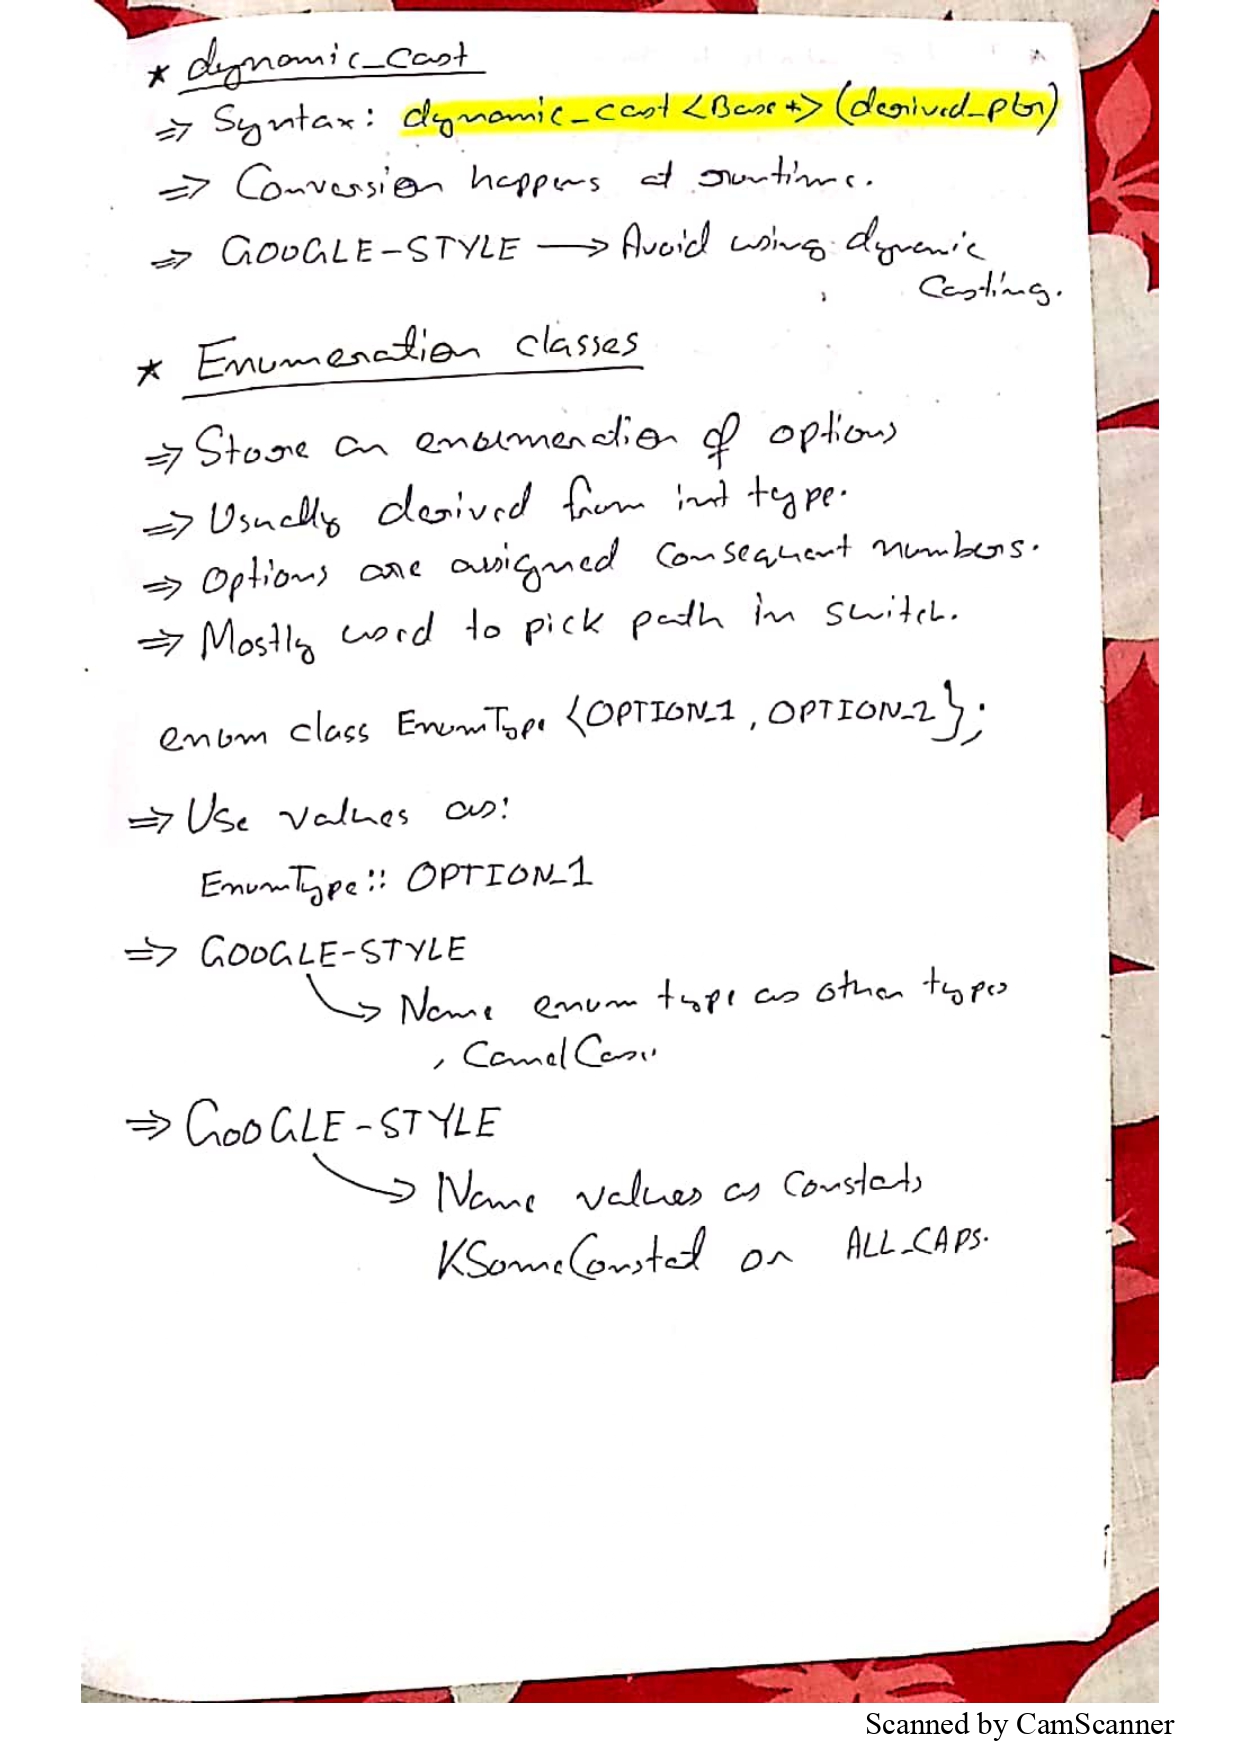 * dynamic_cast
⇒ Syntax: dynamic_cast<Base*>(derived_ptr)
⇒ Conversion happens at runtime.
⇒ GOOGLE-STYLE → Avoid using dynamic
casting.
* Enumeration classes
⇒ Store an enumeration of options
⇒ Usually derived from int type.
⇒ Options are assigned consequent numbers.
⇒ Mostly used to pick path in switch.
enum class EnumType {OPTION_1, OPTION_2};
⇒ Use values as:
EnumType::OPTION_1
⇒ GOOGLE-STYLE
→ Name enum type as other types
, CamelCase
⇒ GOOGLE-STYLE
→ Name values as constants
KSomeConstant or ALL_CAPS.
Scanned by CamScanner